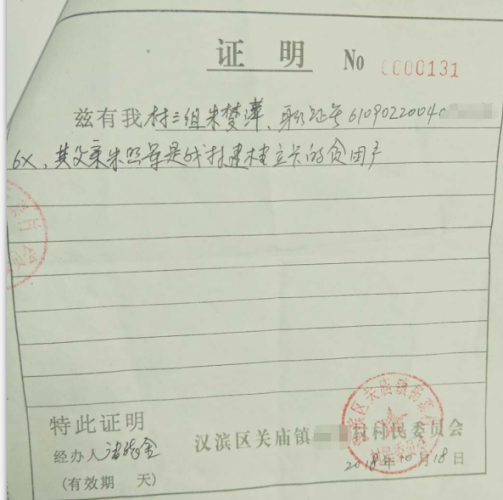 证明 No 0000131
兹有我村三组朱梦萍、身份证号6109022004
6X、其父亲朱照军是我村建档立卡的贫困户
特此证明
经办人
汉滨区关庙镇 村村民委员会
(有效期 天)
2018年10月18日